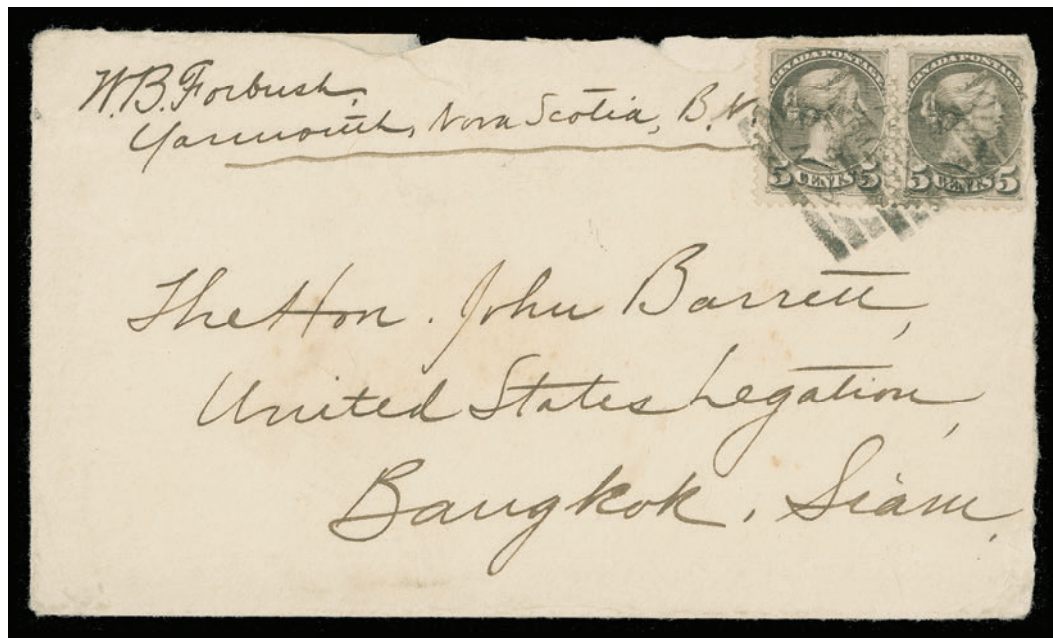 W.B. Forbush,
Yarmouth, Nova Scotia, B.N.
CANADA POSTAGE
5 CENTS 5
CANADA POSTAGE
5 CENTS 5
The Hon. John Barrett,
United States Legation,
Bangkok, Siam,